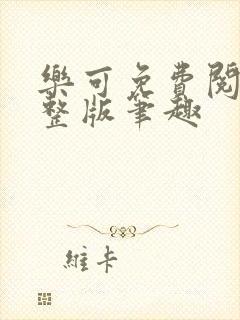 樂可免費閱
整版筆趣
維卡